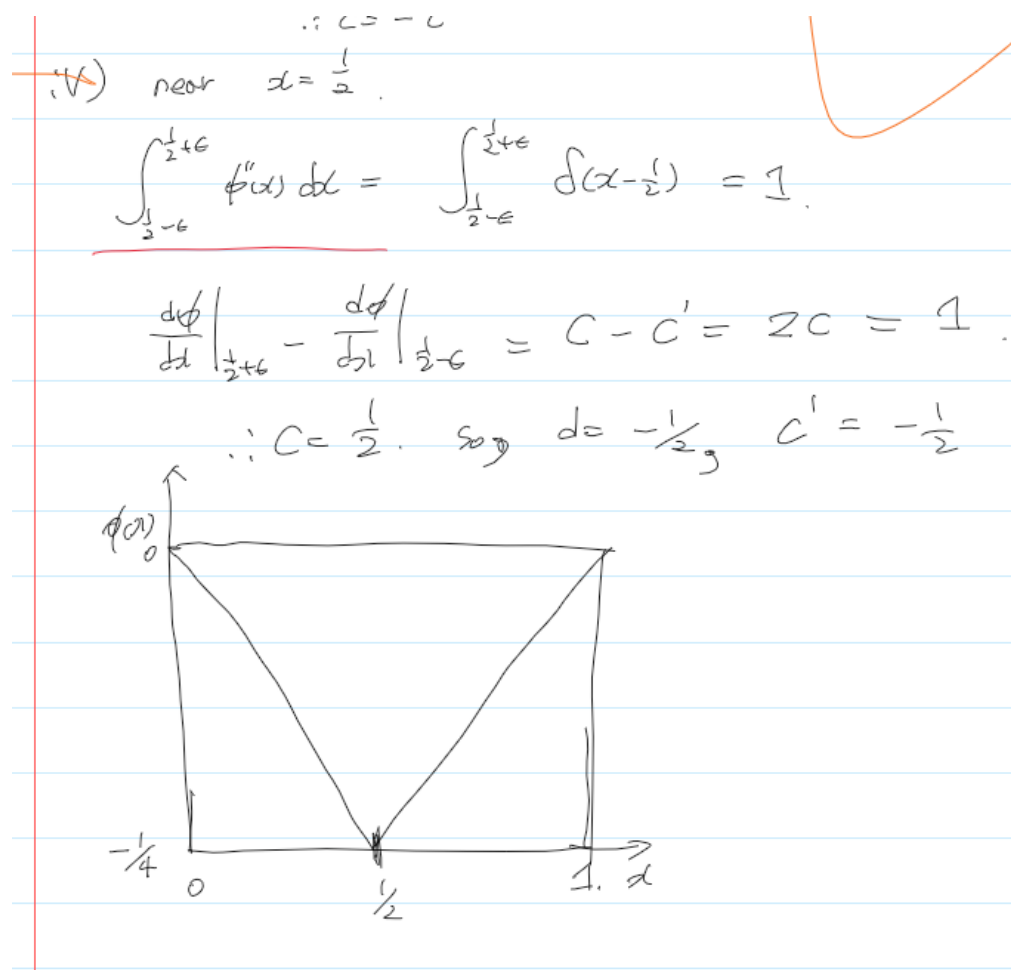 iv) near x = 1/2.
∫_{1/2-ε}^{1/2+ε} φ''(x) dx = ∫_{1/2-ε}^{1/2+ε} δ(x-1/2) = 1.
dφ/dx |_{1/2+ε} - dφ/dx |_{1/2-ε} = C - C' = 2C = 1.
∴ C = 1/2. So, d = -1/2, C' = -1/2
φ(x)
0
-1/4
0 1/2 1. x